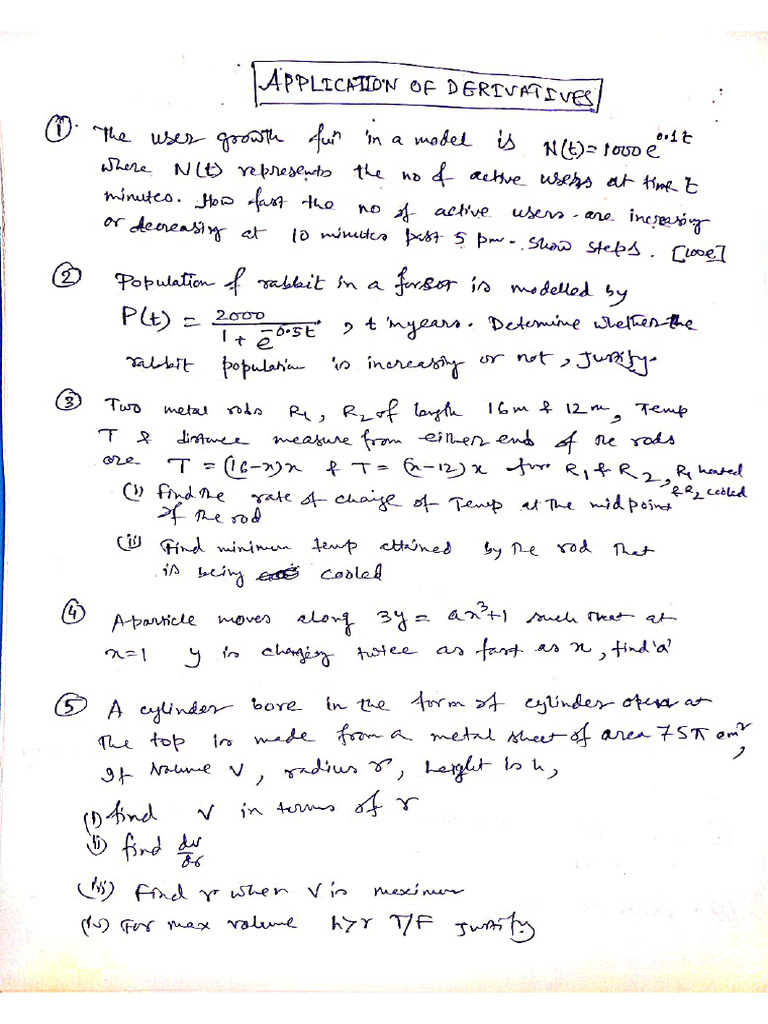 APPLICATION OF DERIVATIVES
① The user growth fuⁿ in a model is N(t)=1000e^0.1t
where N(t) represents the no of active users at time t
minutes. How fast the no of active users are increasing
or decreasing at 10 minutes past 5 pm. Show steps. [100e]
② Population of rabbit in a forest is modelled by
P(t) = 2000 / (1 + e^-0.5t), t in years. Determine whether the
rabbit population is increasing or not, Justify.
③ Two metal rods R1, R2 of length 16m & 12m, Temp
T & distance measure from either end of the rods
are T = (16-x)x & T = (x-12)x for R1 & R2, R1 heated
& R2 cooled
(i) Find the rate of change of Temp at the midpoint
of the rod
(ii) Find minimum temp attained by the rod that
is being cooled
④ A particle moves along 3y = ax³+1 such that at
x=1 y is changing twice as fast as x, find 'a'
⑤ A cylinder bore in the form of cylinder open at
the top is made from a metal sheet of area 75π cm²,
If Volume V, radius r, height is h,
(i) find V in terms of r
(ii) find dv/dr
(iii) Find r when V is maximum
(iv) For max volume h>r T/F Justify